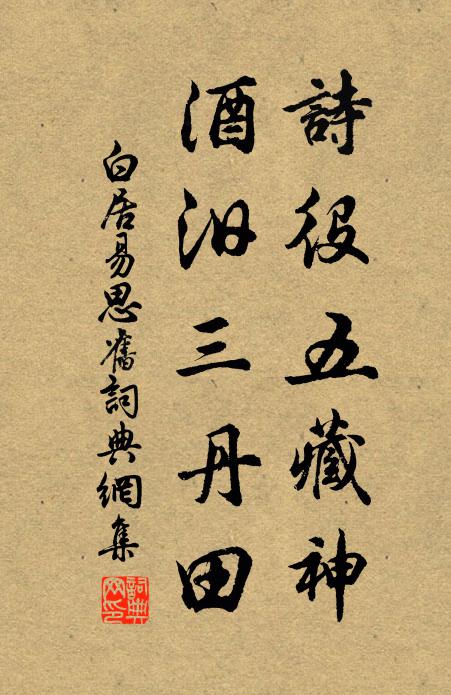 詩役五藏神
酒汩三丹田
白居易思舊詞典網集
詞典网印